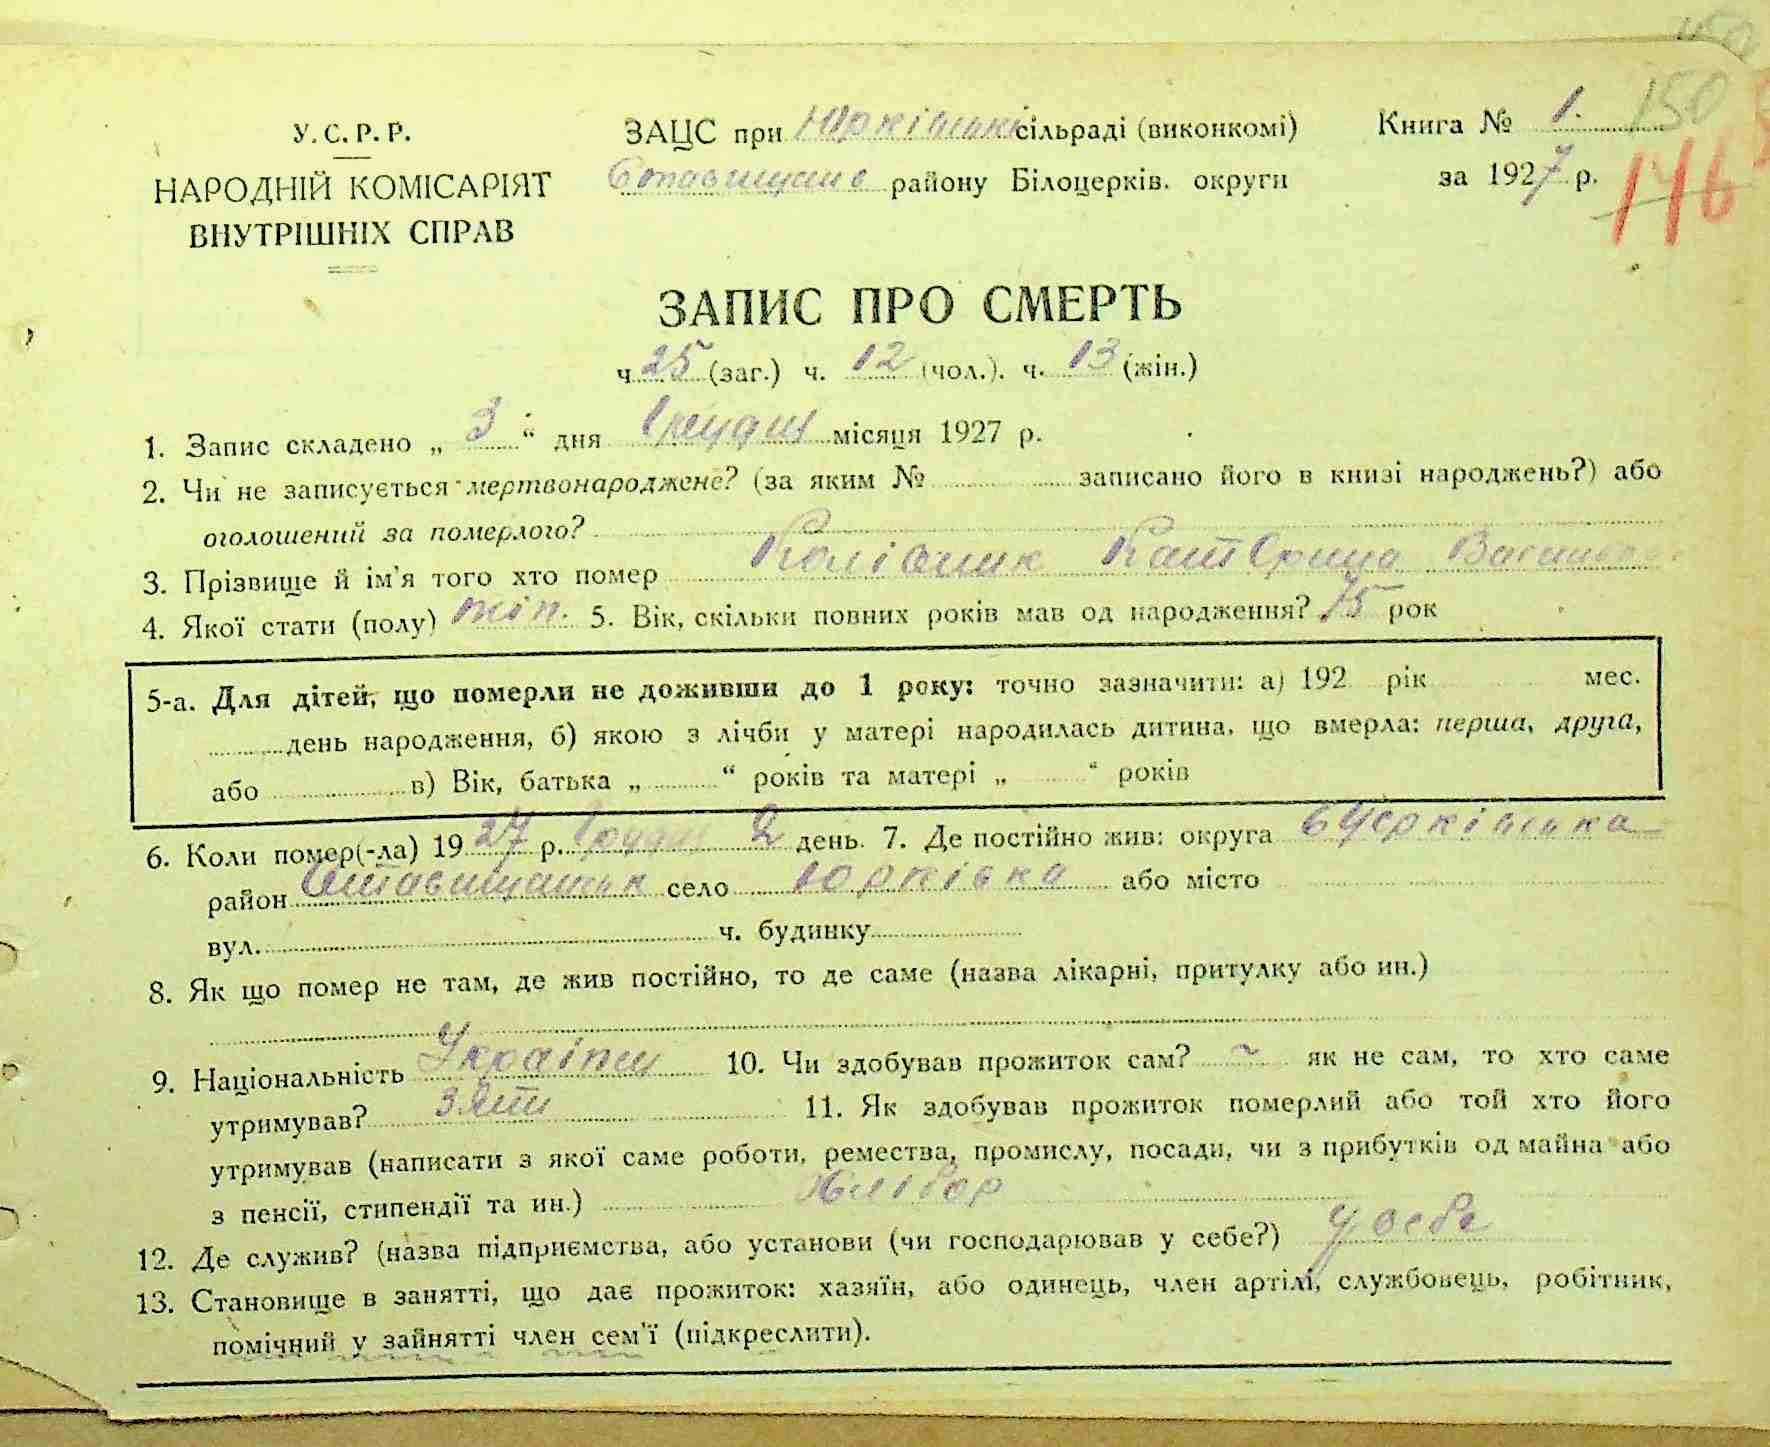 150
У. С. Р. Р.
НАРОДНІЙ КОМІСАРІЯТ
ВНУТРІШНІХ СПРАВ
ЗАЦС при Юрківській сільраді (виконкомі)
району Білоцерків. округи
Книга № 1. 150
за 1927 р. 146
ЗАПИС ПРО СМЕРТЬ
ч. 25 (заг.) ч. 12 (чол.). ч. 13 (жін.)
1. Запис складено „ 3 “ дня Грудня місяця 1927 р.
2. Чи не записується мертвонароджене? (за яким № записано його в книзі народжень?) або
оголошений за померлого?
3. Прізвище й ім'я того хто помер Колісник Катерина
4. Якої стати (полу) жін. 5. Вік, скільки повних років мав од народження? 75 рок
5-а. Для дітей, що померли не доживши до 1 року: точно зазначити: а) 192 рік мес.
день народження, б) якою з лічби у матері народилась дитина, що вмерла: перша, друга,
або в) Вік, батька „ “ років та матері „ “ років
6. Коли помер(-ла) 1927 р. Грудня 2 день. 7. Де постійно жив: округа бЧерківська
район село Юрківка або місто
вул. ч. будинку
8. Як що помер не там, де жив постійно, то де саме (назва лікарні, притулку або ин.)
9. Національність 10. Чи здобував прожиток сам? ~ як не сам, то хто саме
утримував? Зять 11. Як здобував прожиток померлий або той хто його
утримував (написати з якої саме роботи, ремества, промислу, посади, чи з прибутків од майна або
з пенсії, стипендії та ин.) Хлібор
12. Де служив? (назва підприємства, або установи (чи господарював у себе?) у себе
13. Становище в занятті, що дає прожиток: хазяїн, або одинець, член артілі, службовець, робітник,
помічний у зайнятті член сем'ї (підкреслити).